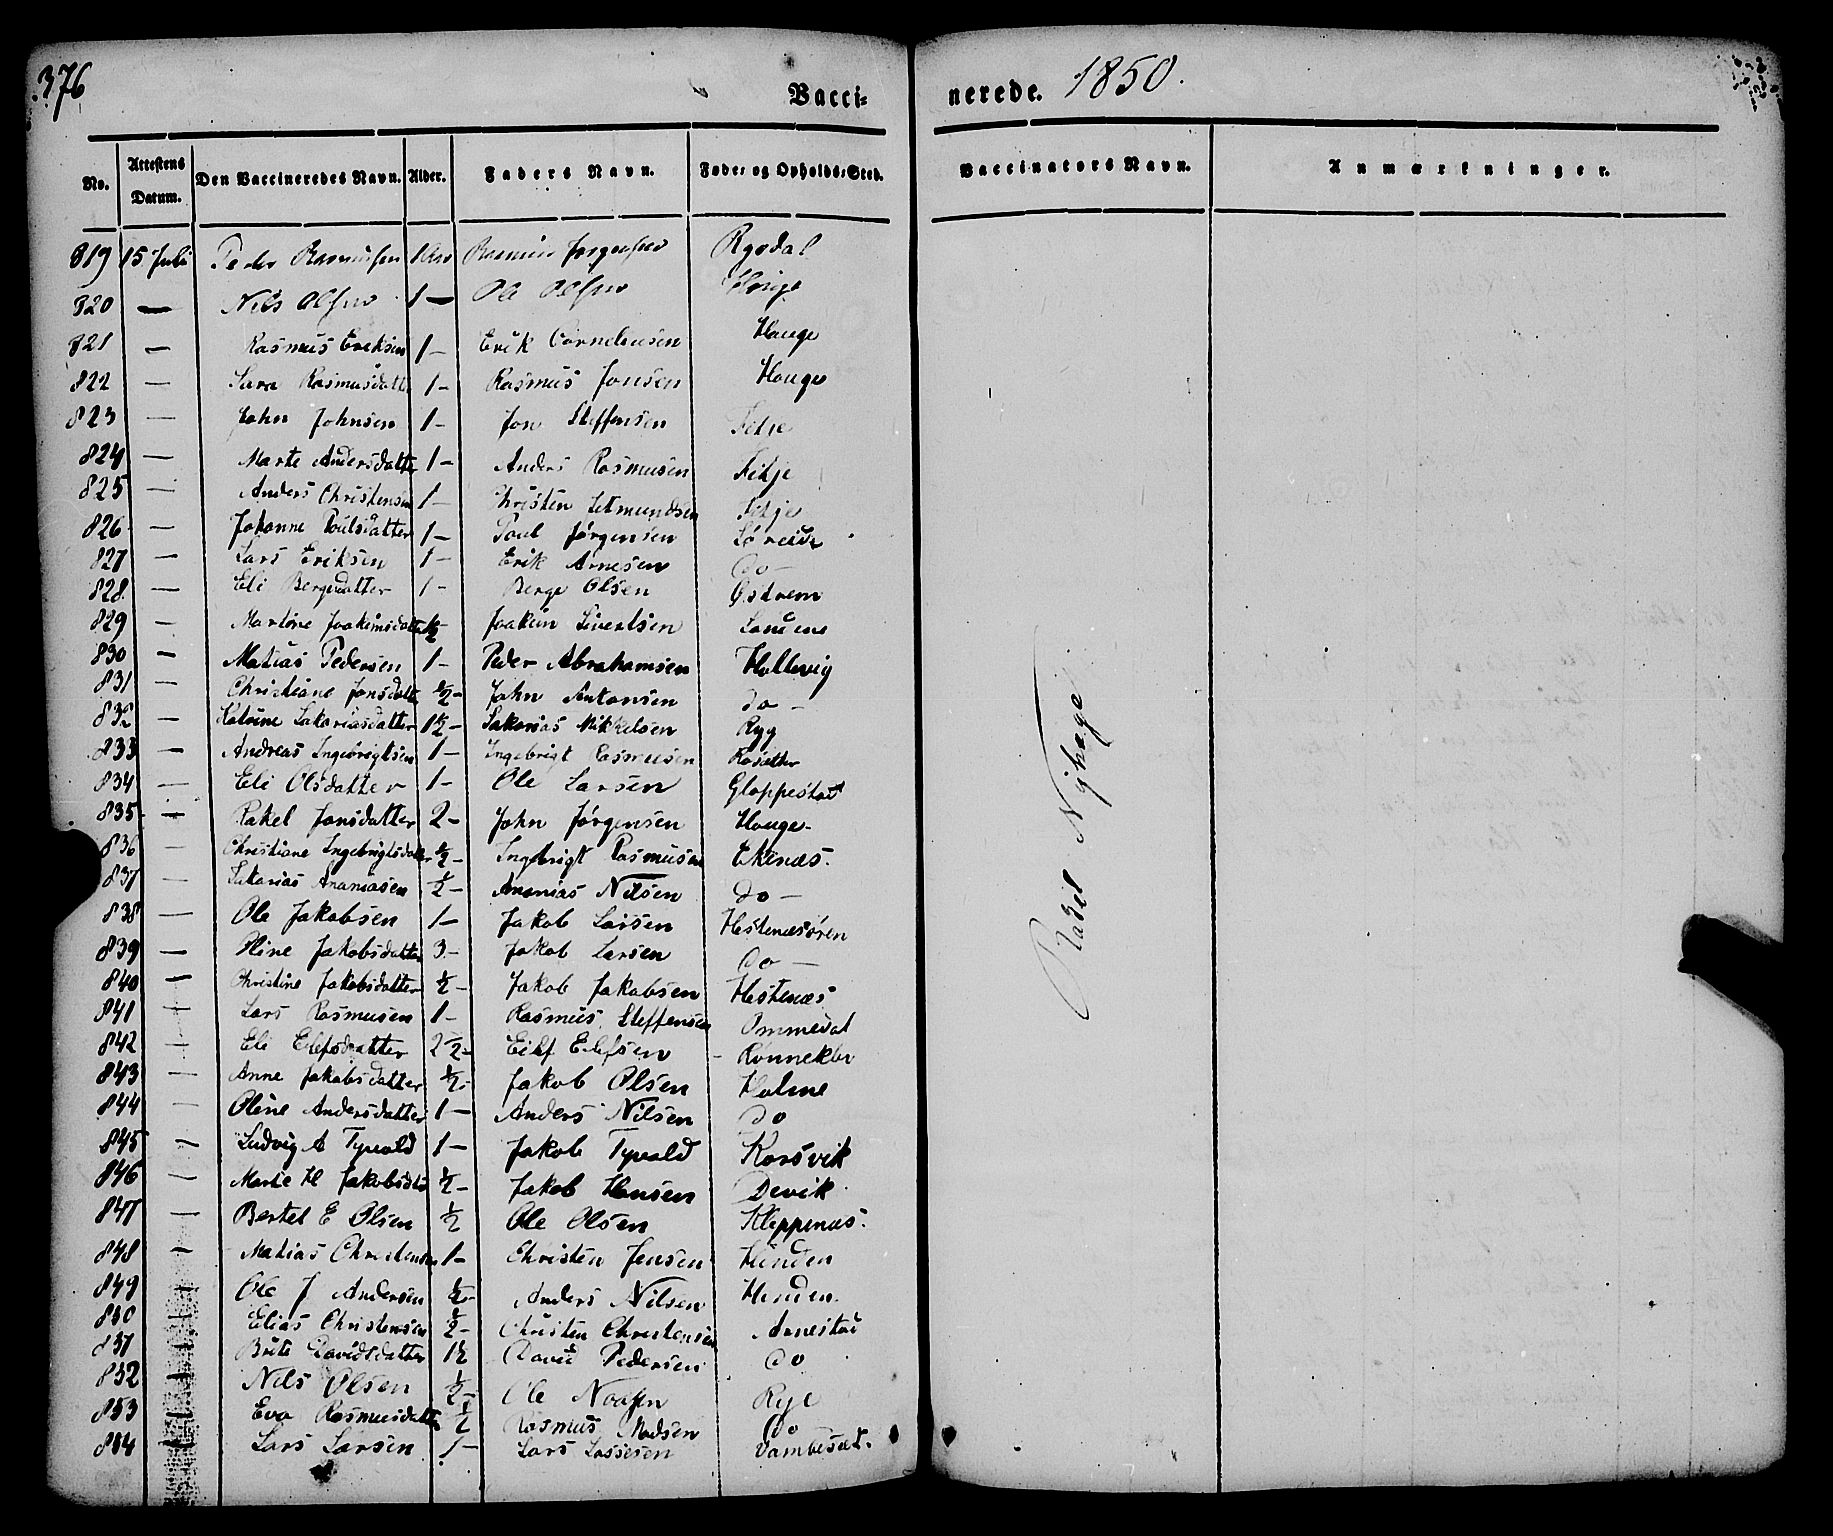 376 Vaccinerede. 1850.
No. Attestens Datum. Den Vaccineredes Navn. Alder. Faders Navn. Føde- og Opholds-Sted. Vaccinators Navn. Anmærkninger.
819 15 Juli Peder Rasmussen 1 Aar Rasmus Rygdal
820 — Nils Olsen 1 — Ole Olsen
821 — Rasmus Eriksen 1 — Erik Corneliusen Hauge
822 — Sara Rasmusdatter 1 — Rasmus Jonsen Hauge
823 — John Johnsen 1 — Jon Steffensen Fitje
824 — Marte Andersdatter 1 — Anders Rasmusen Fitje
825 — Anders Christensen 1 — Christen Fitje
826 — Johanne Poulsdatter 1 — Poul Jørgensen Søreide
827 — Lars Eriksen 1 — Erik Arnesen do —
828 — Eli Bergedatter 1 — Berge Olsen Østrem
829 — Martine Joakimsdatter ½ — Joakim Sivertsen Sandene
830 — Matias Pedersen 1 — Peder Abrahamsen Hollevig
831 — Christiane Jonsdatter ½ — John Antonsen do —
832 — Katrine Sakariasdatter 1½ — Sakarias Mikkelsen Ryg
833 — Andreas Ingebrigtsen 1 — Ingebrigt Rasmusen Rosætter
834 — Eli Olsdatter 1 — Ole Larsen Gloppestad
835 — Rakel Jonsdatter 2 — John Jørgensen Hauge
836 — Christiane Ingebrigtsdatter ½ — Ingebrigt Rasmusen Ekenæs.
837 — Sakarias Ananiasen ½ — Ananias Nilsen do —
838 — Ole Jakobsen 1 — Jakob Larsen Hestenæsøren
839 — Oline Jakobsdatter 3 — Jakob Larsen do —
840 — Christine Jakobsdatter ½ — Jakob Jakobsen Hestenæs
841 — Lars Rasmusen 1 — Rasmus Steffensen Ommedal
842 — Eli Elefsdatter 2½ — Eilef Elefsen Rønneklev
843 — Anne Jakobsdatter ½ — Jakob Olsen Holme
844 — Oline Andersdatter 1 — Anders Nilsen do
845 — Ludvig A Tyvold 1 — Jakob Tyvold Korsvik
846 — Marte H Jakobsdtr ½ — Jakob Hansen Devik
847 — Bertel E Olsen ½ Ole Olsen Kleppenæs.
848 — Matias Christensen 1 — Christen Jensen Hinden
849 — Ole J Andersen ½ — Anders Nilsen Hinden
850 — Elias Christensen ½ — Christen Christensen Arnestad
837 — Brite Davidsdatter 1½ David Pedersen do
852 — Nils Olsen ½ — Ole Noasen Rye
853 — Eva Rasmusdatter ½ Rasmus Madsen do
884 — Lars Larsen 1 — Lars Lassesen Vambeset.
Rakel Nyhage